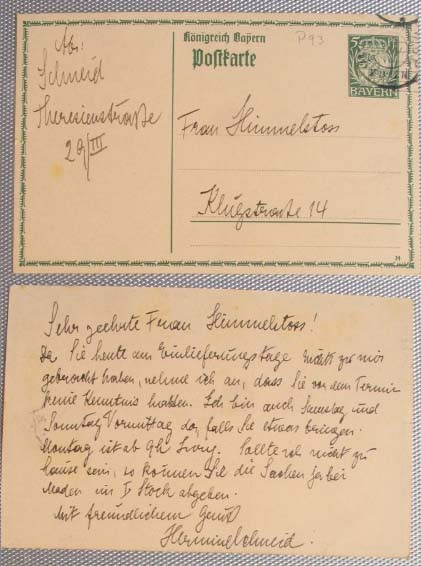 Ab:
Schmeid
Theresienstraße
29/III
Königreich Bayern
Postkarte
P 93
5
BAYERN
Frau Himmelstoss
Klugstraße 14
14
Sehr geehrte Frau Himmelstoss!
Da Sie heute am Einlieferungstage nicht zu mir
gebracht haben, nehme ich an, dass Sie von dem Termin
keine Kenntnis hatten. Ich bin auch Samstag und
Sonntag Vormittag da, falls Sie etwas bringen.
Montag ist ab 9h Jury. Sollte ich nicht zu
Hause sein, so können Sie die Sachen ja bei
im I. Stock abgeben.
Mit freundlichem Gruß
Hermine Schmeid.